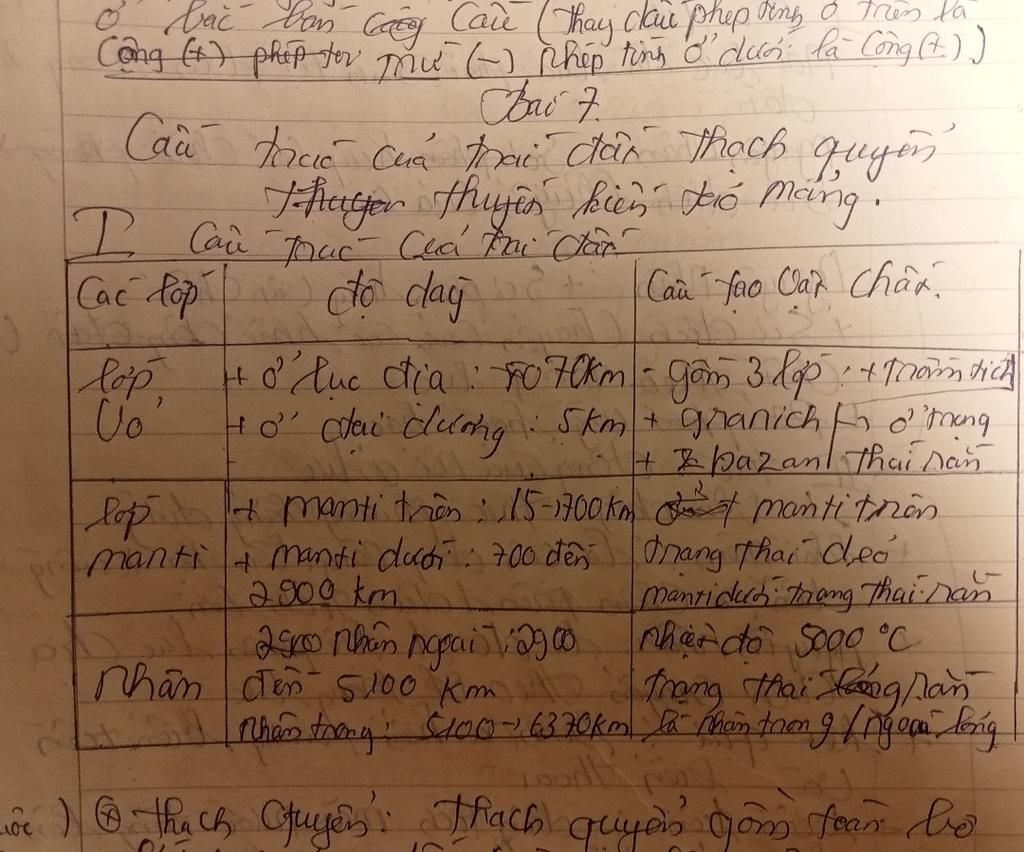 ở bắc bán cầu (thay dấu phép tính ở trên là
Cộng (+) phép trừ (-) phép tính ở dưới là Cộng (+).)
Bài 7.
Cấu trúc của trái đất thạch quyển
thuyết kiến tạo mảng.
I Cấu trúc của trái đất
Các lớp | độ dày | Cấu tạo vật chất.
lớp vỏ | + ở lục địa : 70km | - gồm 3 lớp : + trầm tích
+ ở đại dương : 5km | + granich ở trạng
+ bazan thái rắn
lớp manti | + manti trên : 15→700km | + manti trên
+ manti dưới : 700 đến | trạng thái dẻo
2900 km | manti dưới trạng thái rắn
nhân | nhân ngoài : 2900 | nhiệt độ 5000 °C
đến 5100 km | trạng thái rắn
nhân trong : 5100→6370km | là nhân trong / ngoài lỏng
) ⊕ thạch quyển : Thạch quyển gồm toàn bộ